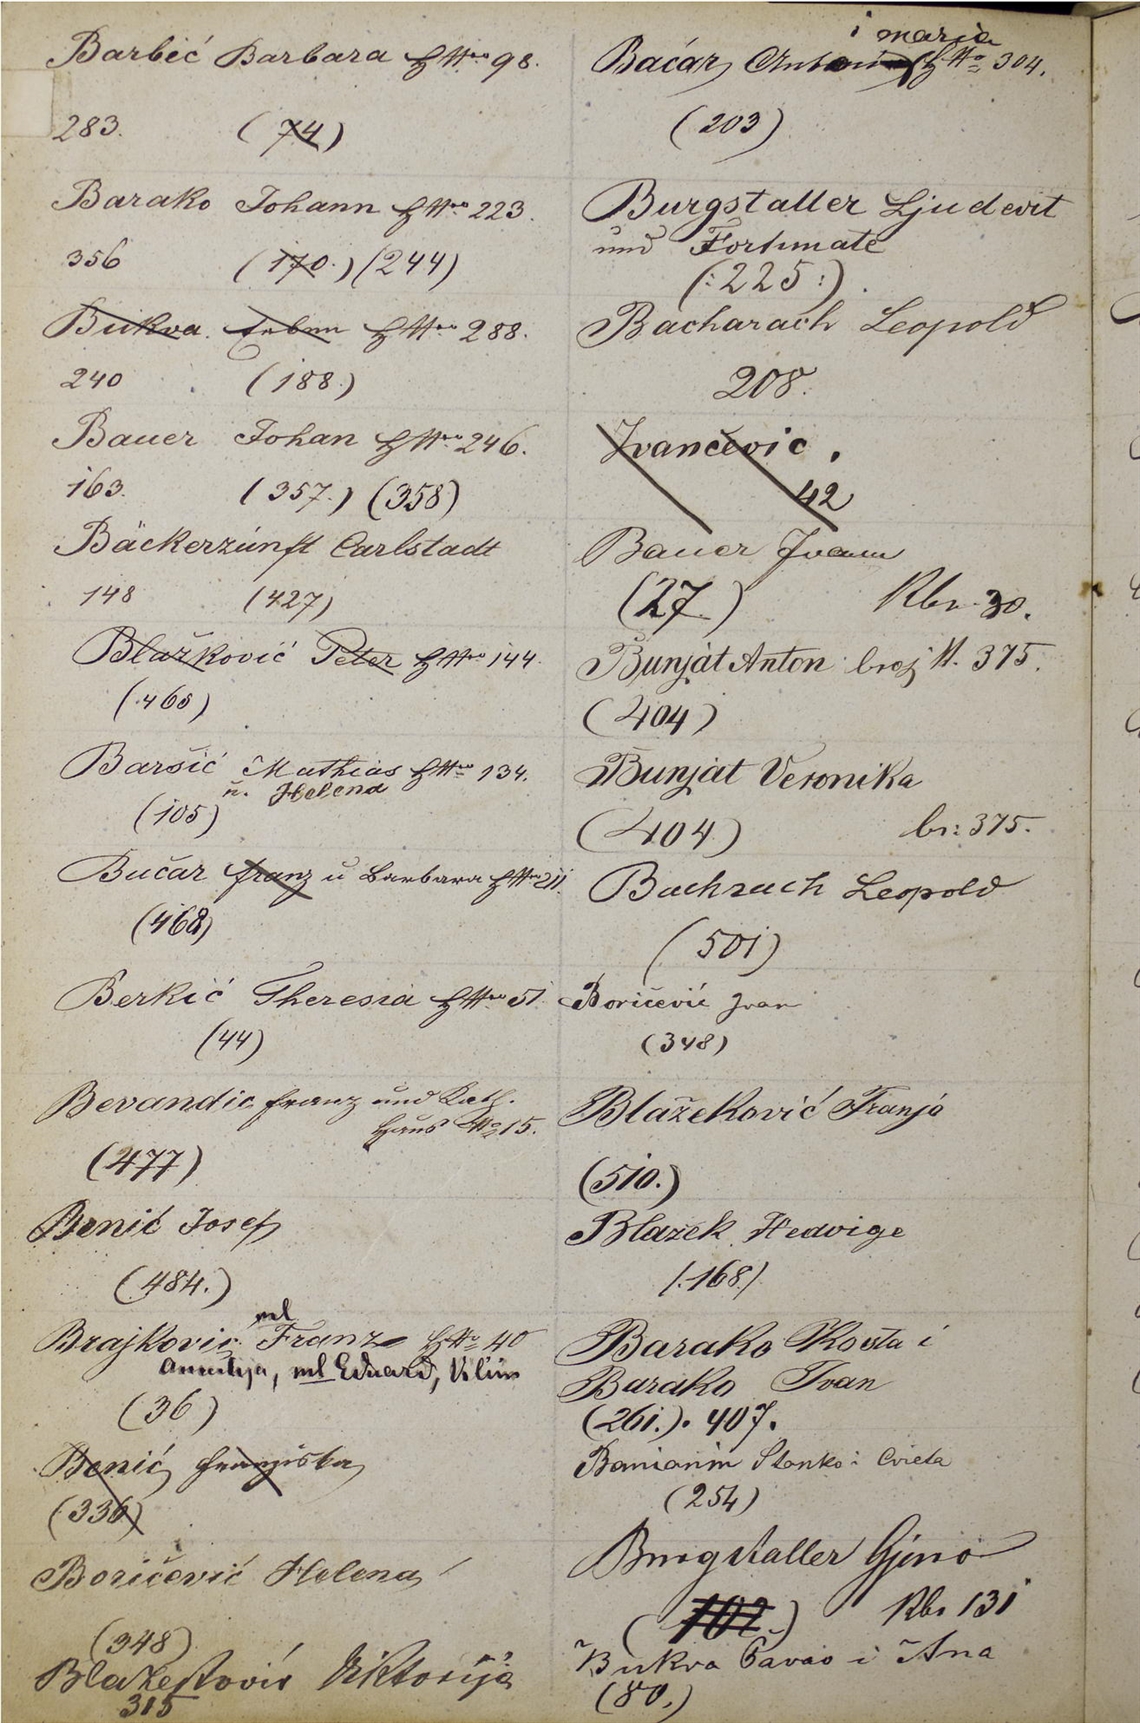 Barbić Barbara HNro 98.
283. (74)
Barako Johann HNro 223.
356 (170.) (244)
Bukva Erben HNro 288.
240 (188.)
Bauer Johan HNro 246.
163. (357.) (358)
Bäckerzunft Carlstadt
148 (427)
Blažković Peter HNro 144.
(465)
Barsić Mathias HNro 134.
u. Helena
(105)
Bučar Franz u Barbara HNro 211.
(468)
Berkić Theresia HNro 51.
(44)
Bevandic Franz und Kath.
Haus No 15.
(477)
Benić Josef
(484.)
ml
Brajkovic Franz HNo 40
Amalija, ml Eduard, Vilim
(36)
Benić Franziska
(336)
Boričević Helena
(348)
Blažeković Viktorija
315
i Maria
Baćar HNo 304.
(203)
Burgstaller Ljudevit
und Fortunate
(:225:)
Bacharach Leopold
208.
Ivančević.
42
Bauer Ivann
(27) Kbr. 30.
Bunjat Anton broj N. 375.
(404)
Bunjat Veronika
(404) br: 375.
Bachrach Leopold
(501)
Boričević Ivan
(348)
Blažeković Franjo
(510.)
Blazek Hedvige
/.168./
Barako Kosta i
Barako Ivan
(261.). 407.
Stanko i Cvieta
(254)
Burgstaller Gjuro
(102.) Kbr 131
Bukva Pavao i Ana
(80.)